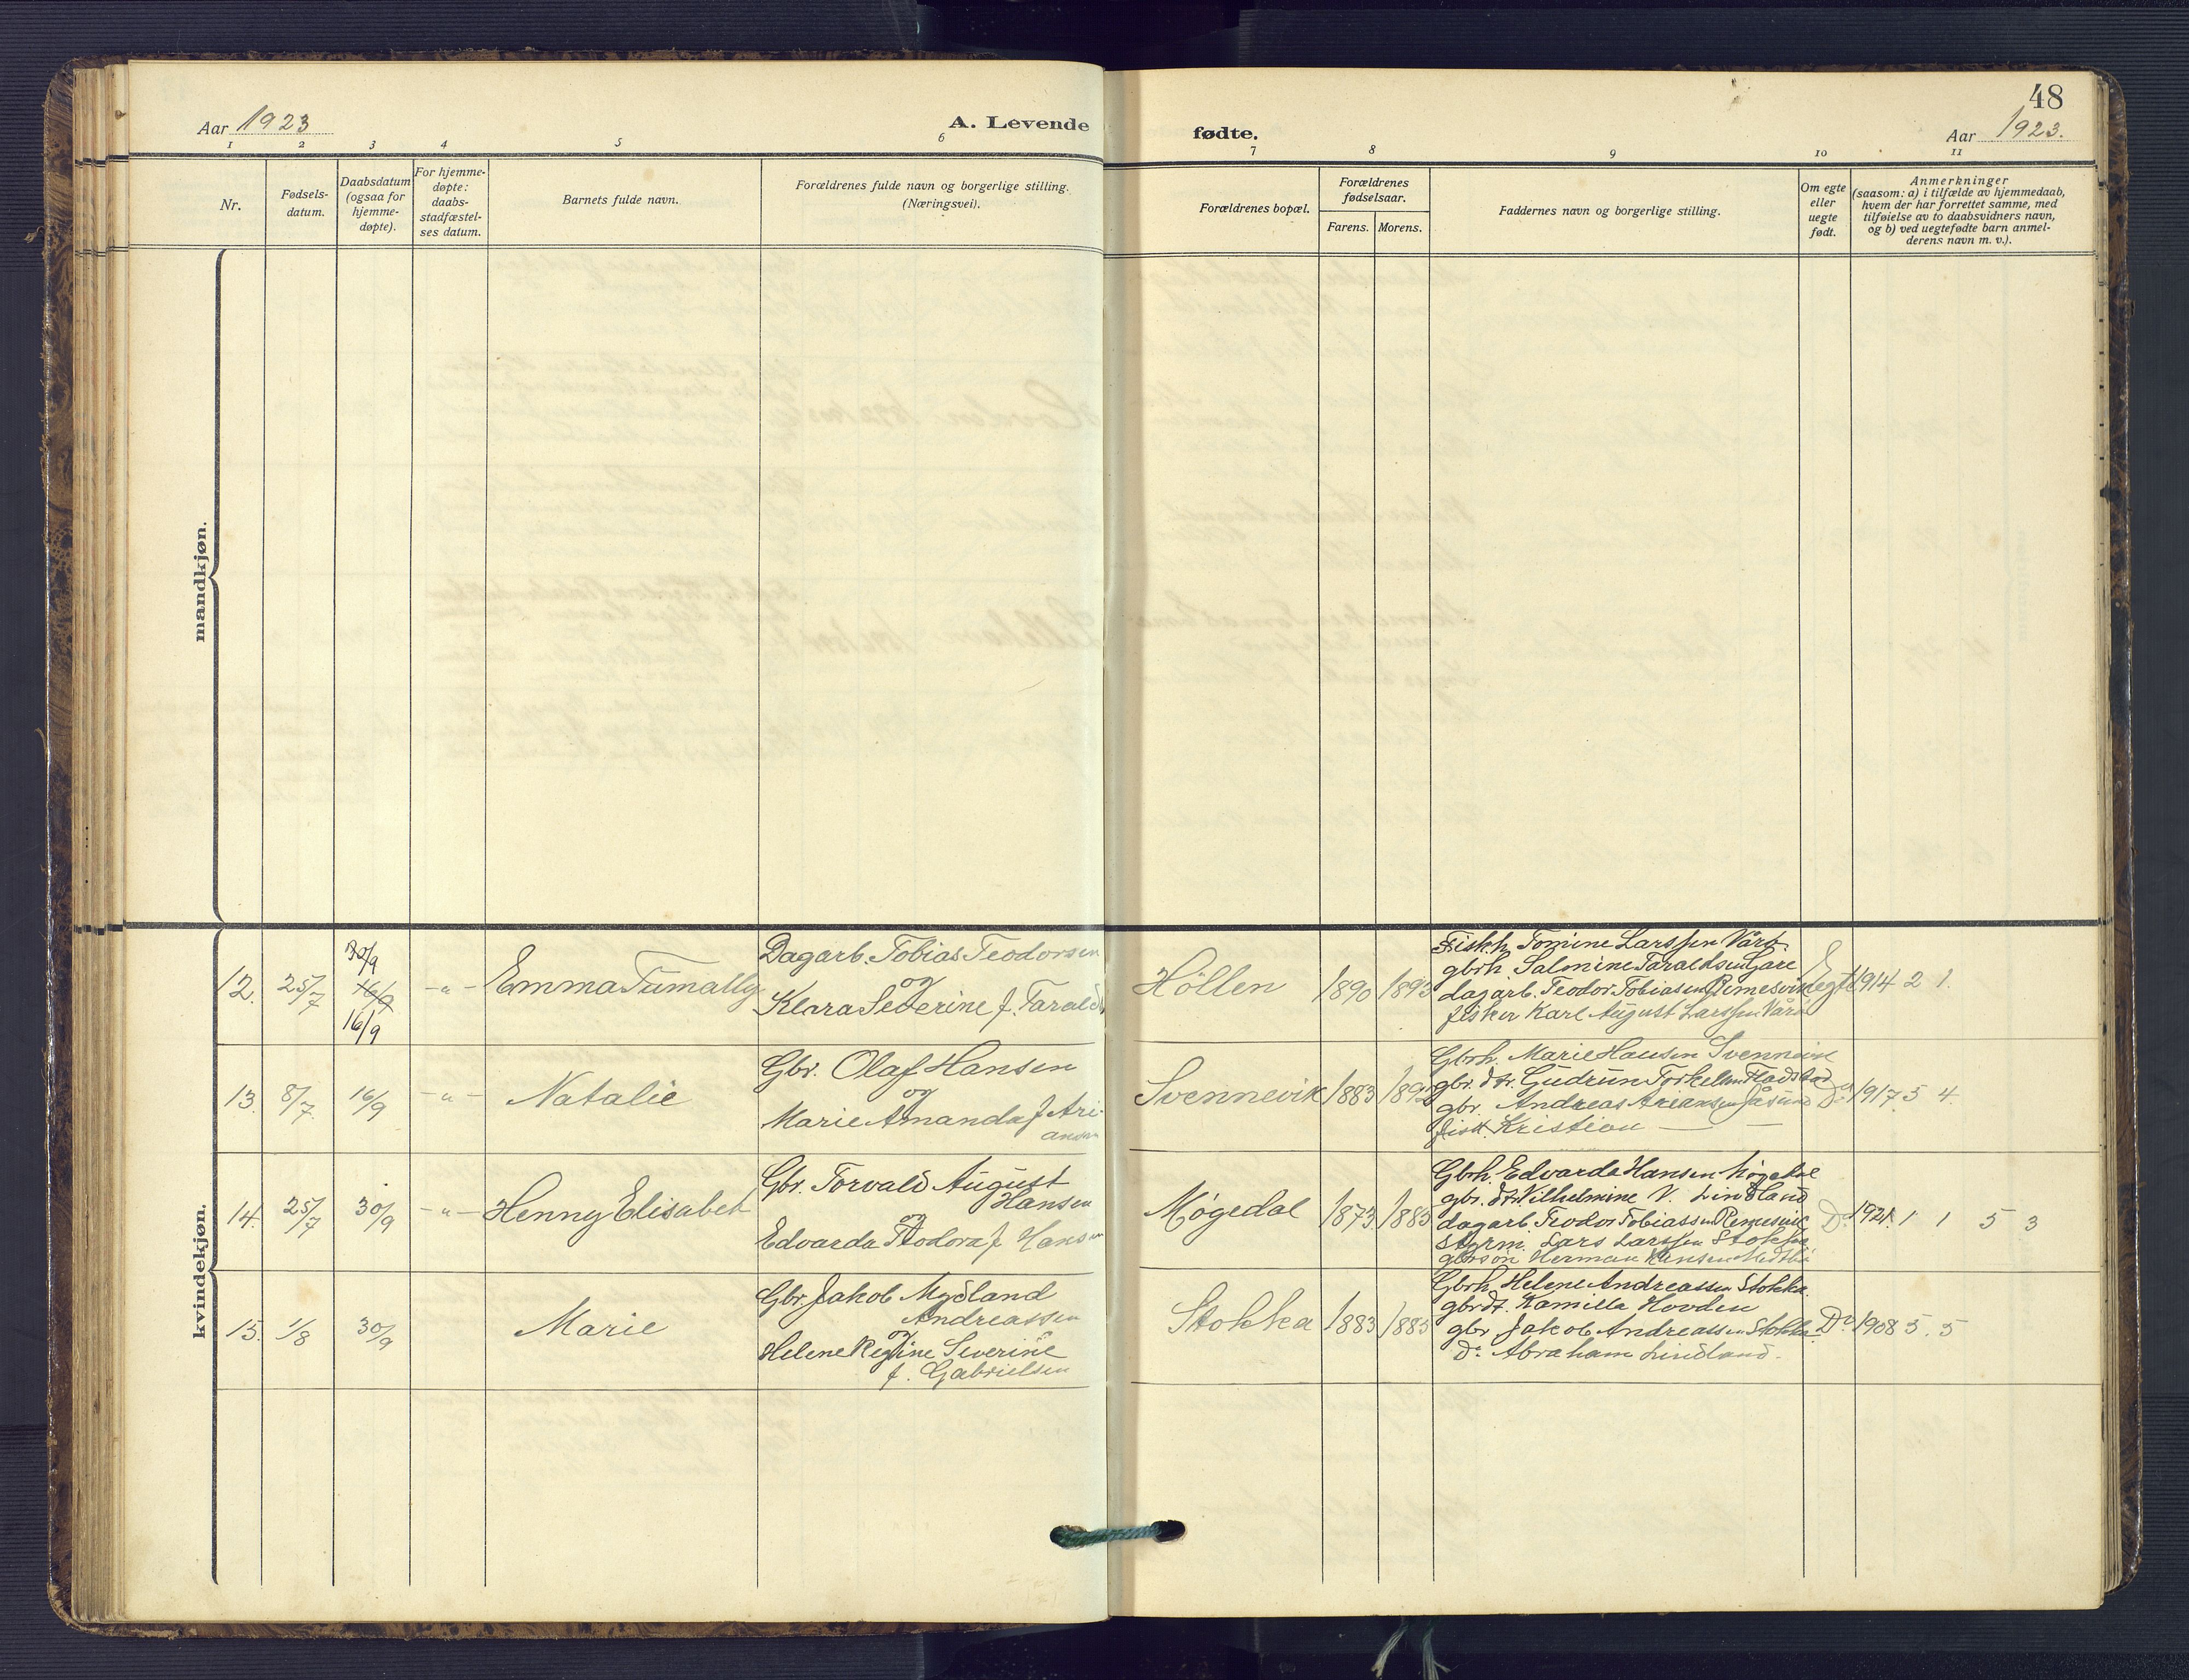 48
Aar 1923
A. Levende
fødte.
Aar 1923.
1 2 3 4 5 6 7 8 9 10 11
Nr.
Fødsels-
datum.
Daabsdatum
(ogsaa for
hjemme-
døpte).
For hjemme-
døpte:
daabs-
stadfæstel-
ses datum.
Barnets fulde navn.
Forældrenes fulde navn og borgerlige stilling.
(Næringsvei).
Forældrenes bopæl.
Forældrenes
fødselsaar.
Farens. Morens.
Faddernes navn og borgerlige stilling.
Om egte
eller
uegte
født.
Anmerkninger
(saasom: a) i tilfælde av hjemmedaab,
hvem der har forrettet samme, med
tilføielse av to daabsvidners navn,
og b) ved uegtefødte barn anmel-
derens navn m. v.).
mandkjøn.
kvindekjøn.
12. 25/7
30/9
16/9
16/9
-"-
Emma Tumally
Dagarb. Tobias Teodorsen
og
Klara Severine f. Tarald
Höllen
1890 1893
Fiskh. Tomine Larssen Vårö
gbrh. Salmine Taraldsen Gare
dagarb. Teodor Tobiasen Remesvik
fisker Karl August Larssen Vårö
Egte
1914 2 1.
13. 8/7 16/9 -"-
Natalie
Gbr. Olaf Hansen
og
Marie Amanda f Ari-
ansen
Svennevik
1883 1892
Gbrh. Marie Hansen Svennevik
gbr. dtr. Gudrun Torkelsen
gbr. Andreas Areansen Jåsund
fisk. Kristian — —
Do
1917 5 4.
14. 25/7 30/9 -"-
Henny Elisabet
Gbr. Torvald August
Hansen
og
Edvarda Teodora f Hansen
Møgedal
1873 1885
Gbrh. Edvarda Hansen Møgedal
gbr. dtr. Vilhelmine V. Lindland
dagarb. Teodor Tobiassen Remesvik
styrm. Lars Larssen Stokka
gbrsøn Herman Hansen
Do
1921. 1 1 5 3
15. 1/8 30/9
Marie
Gbr. Jakob Mydland
Andreassen
og
Helene Regine Severine
f. Gabrielsen
Stokka
1883 1885
Gbrh. Helene Andreassen Stokka.
gbrdt. Kamilla Hovden
gbr Jakob Andreassen Stokka.
Do Abraham Lindland.
Do
1908 5. 5